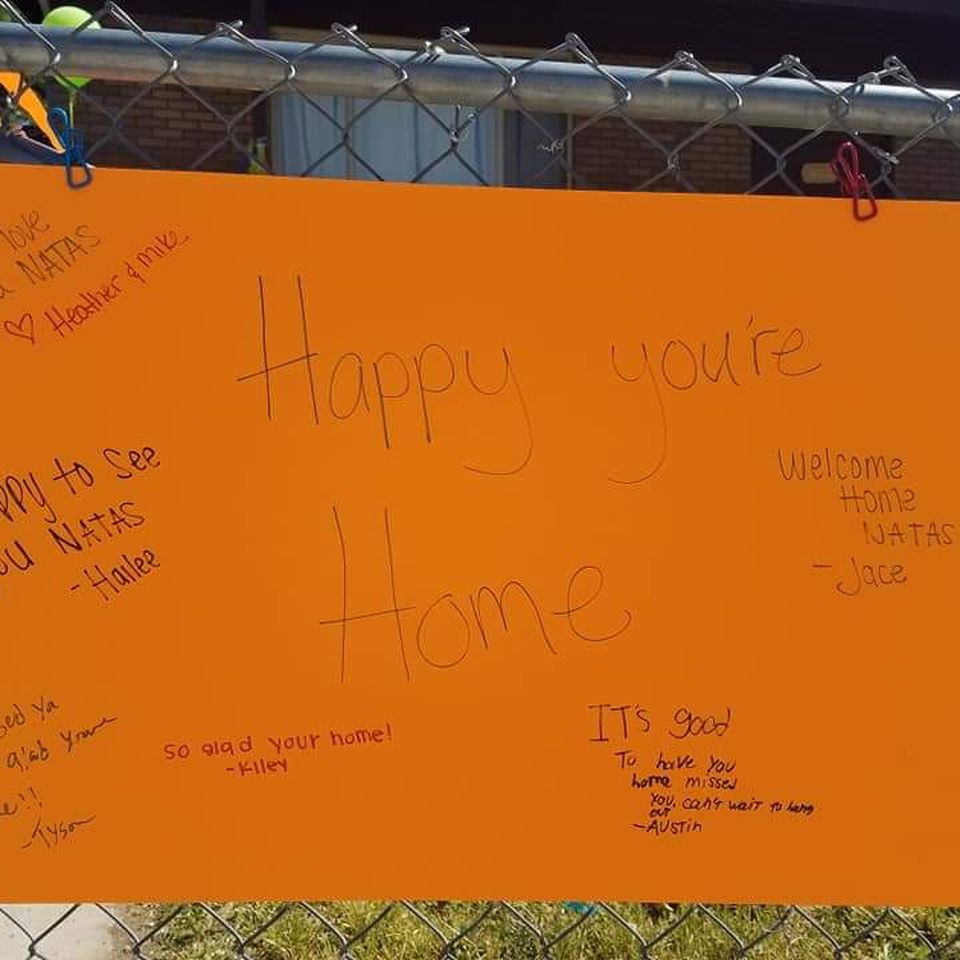 love
NATAS
♡ Heather & mike
Happy you're
Home
ppy to See
ou NATAS
-Hailee
Welcome
Home
NATAS
-Jace
sed ya
So glad your home!
-Kiley
IT's good
To have you
home missed
you. can't wait to hang
out
-AUSTin
-Tyson